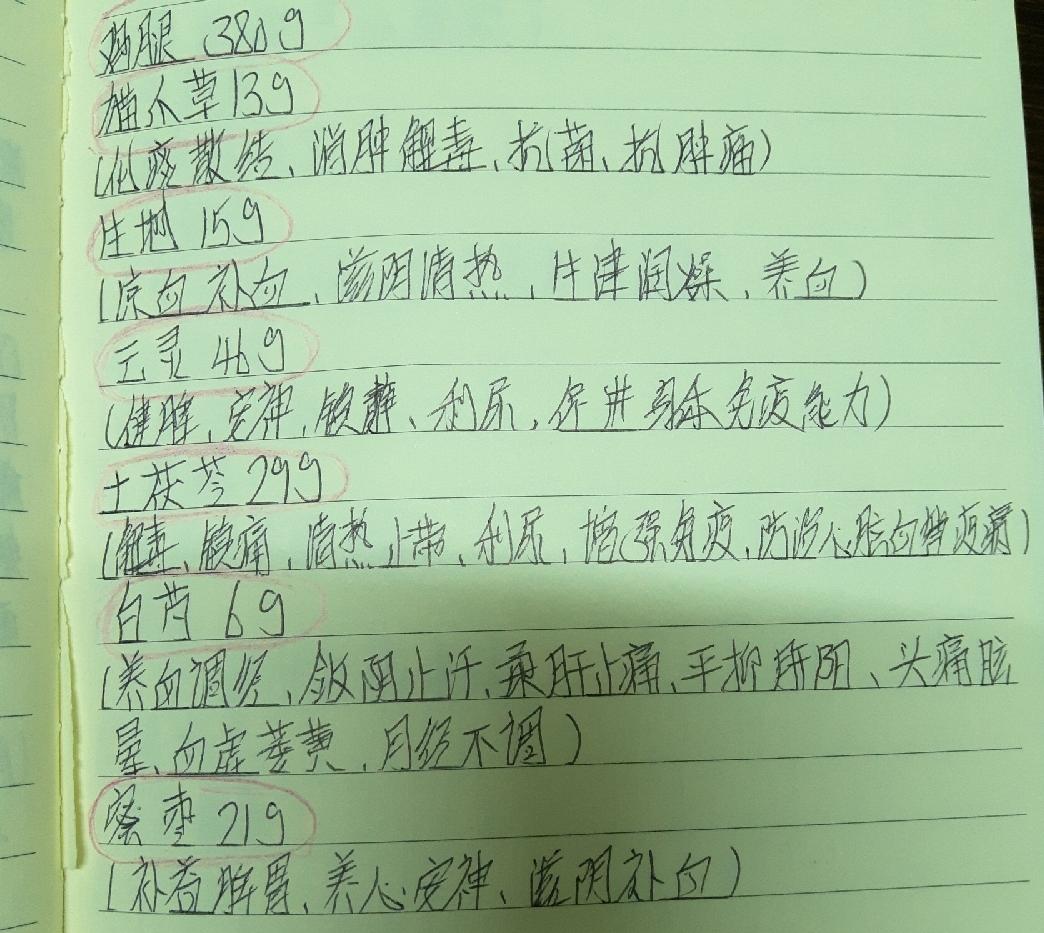 鸡腿 380g
猫爪草13g
(化痰散结、消肿解毒、抗菌、抗肿痛)
生地 15g
(凉血补血、滋阴清热、生津润燥、养血)
云灵 46g
(健脾、安神、镇静、利尿、促进身体免疫能力)
土茯苓 29g
(解毒、镇痛、清热止带、利尿、增强免疫、防治心脏血管疫病)
白芍 6g
(养血调经、敛阴止汗、柔肝止痛、平抑肝阳、头痛眩
晕、血虚萎黄、月经不调)
蜜枣 21g
(补益脾胃、养心安神、滋阴补血)